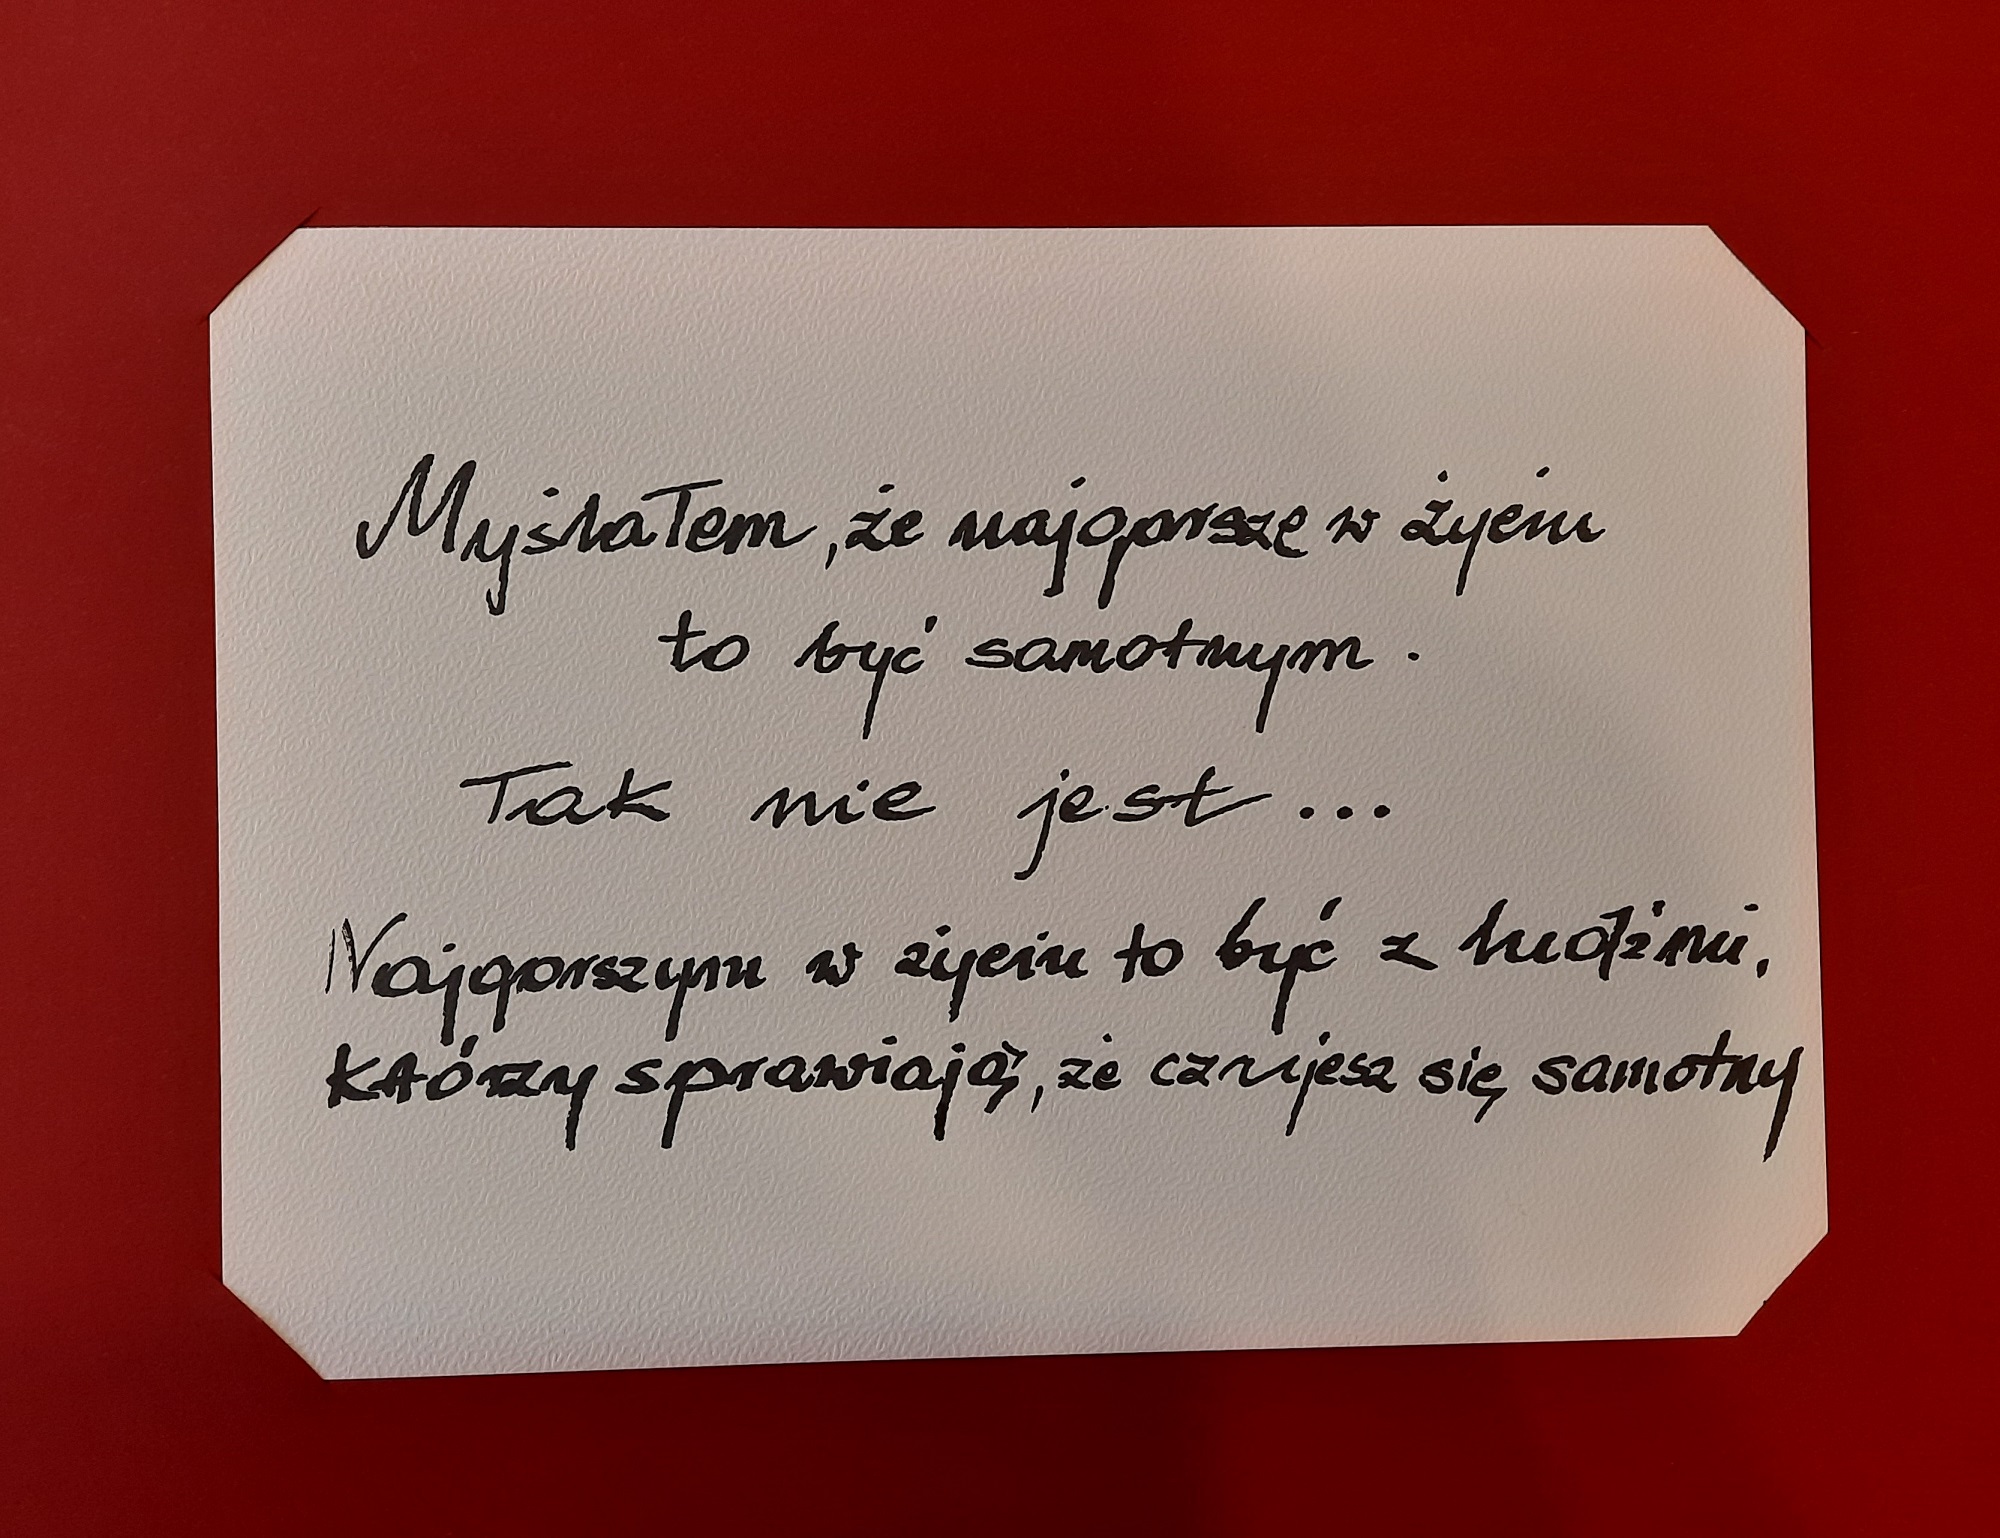 Myślałem, że najgorszę w życiu
to być samotnym.
Tak nie jest...
Najgorszym w życiu to być z ludźmi,
którzy sprawiają, że czujesz się samotny